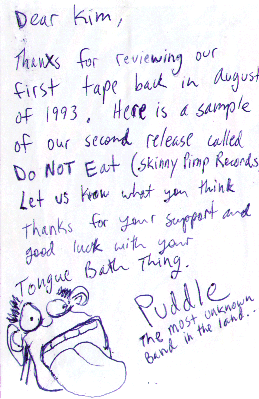 Dear Kim,
Thanks for reviewing our
first tape back in August
of 1993. Here is a sample
of our second release called
Do NOT Eat (Skinny Pimp Records)
Let us know what you think
Thanks for your support and
good luck with your
Tongue Bath Thing.
Puddle
The most unknown
Band in the land..